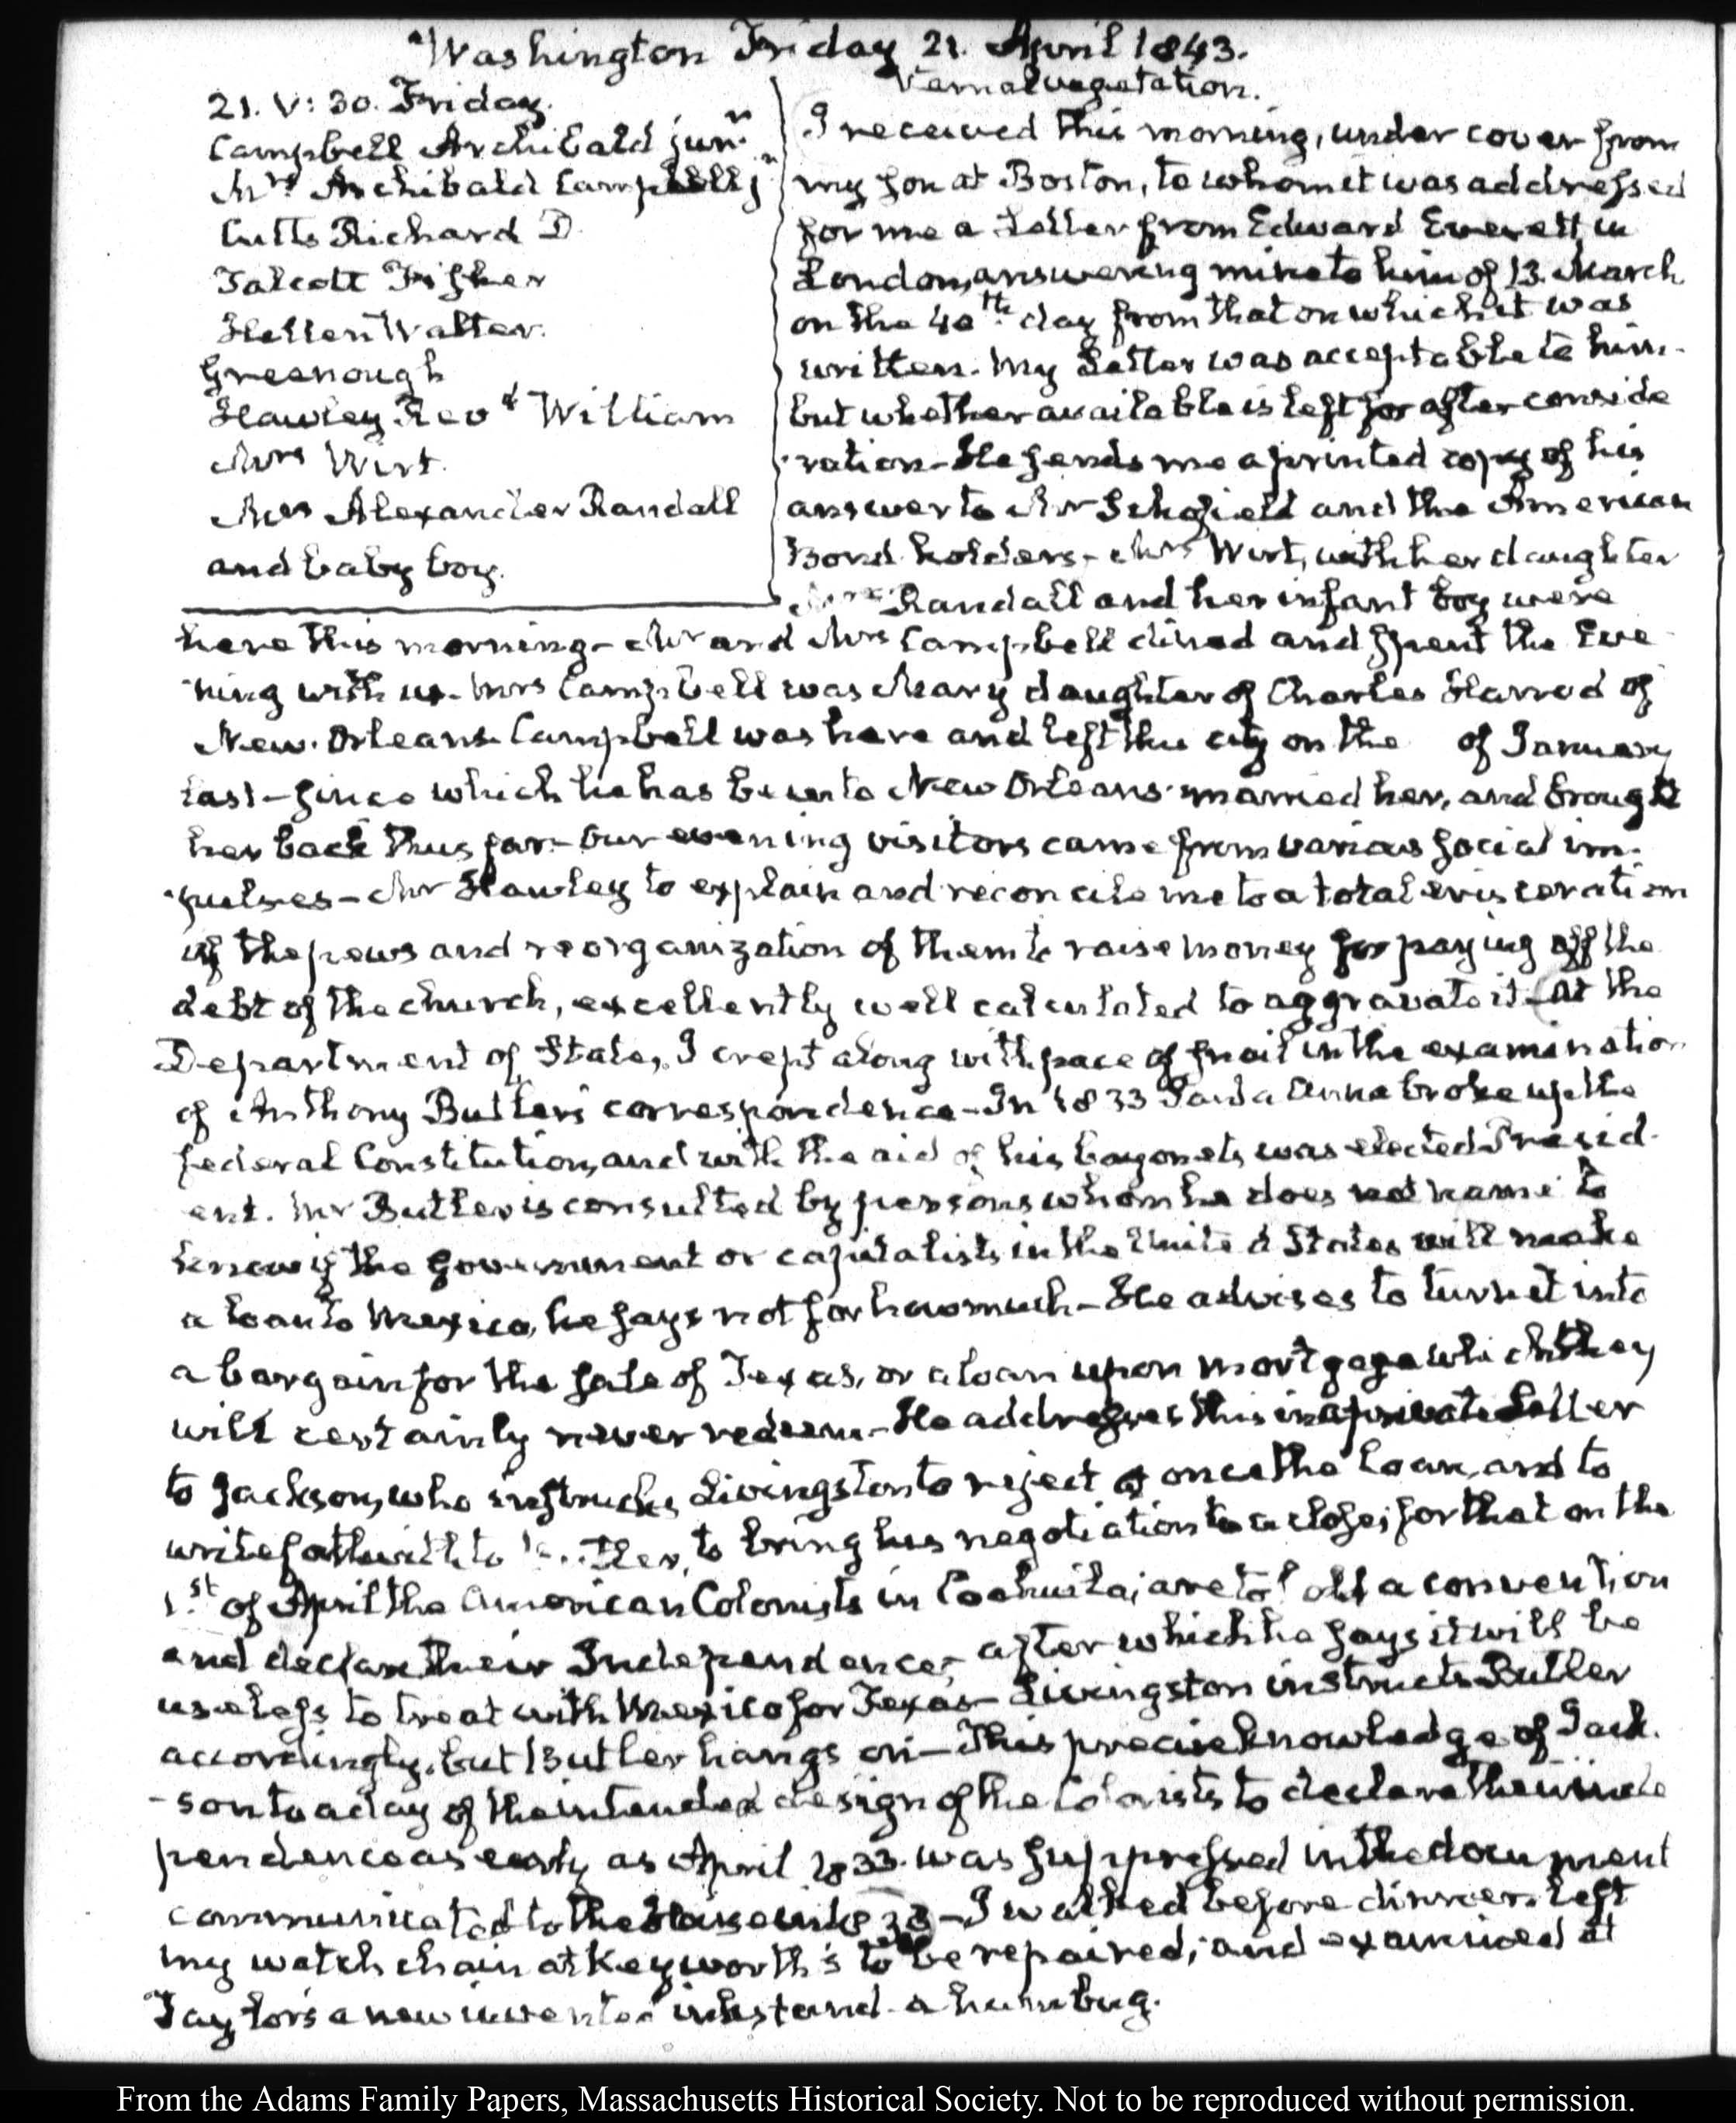 Washington Friday 21. April 1843.
21. V: 30. Friday.
Campbell Archibald junr.
Mrs Archibald Campbell jr
Cutts Richard D
Talcott Fisher
Hellen Walter.
Greenough
Hawley Revd William
Mrs Wirt.
Mrs Alexander Randall
and baby boy.
Vernal vegetation.
I received this morning, under cover from
my son at Boston, to whom it was addressed
for me a Letter from Edward Everett in
London, answering mine to him of 13. March
on the 40th. day from that on which it was
written. My Letter was acceptable to him-
but whether available is left for after conside
ration- He sends me a printed copy of his
answer to Mr Schofield and the American
Bond holders- Mrs Wirt, with her daughter
Mrs Randall and her infant boy were
here this morning- Mr and Mrs Campbell dined and spent the Eve
ning with us. Mrs Campbell was Mary daughter of Charles Harrod of
New Orleans. Campbell was here and left this city on the of January
last- since which he has been to New Orleans married her, and brought
her back thus far- Our evening visitors came from various social im-
pulses- Mr Hawley to explain and reconcile me to a total evisceration
of the pews and reorganization of them to raise money for paying off the
debt of the church, excellently well calculated to aggravate it- At the
Department of State, I crept along with pace of snail in the examination
of Anthony Butler's correspondence- In 1833 Santa Anna broke up the
federal Constitution, and with the aid of his bayonets was elected Presid-
ent. Mr Butler is consulted by persons whom he does not name to
know if the Government or capitalists in the United States will make
a loan to Mexico, he says not for how much- He advises to turn it into
a bargain for the sale of Texas, or a loan upon mortgage which they
will certainly never redeem- He addresses this in a private Letter
to Jackson, who instructs Livingston to reject at once the loan, and to
write forthwith to Butler, to bring his negotiation to a close; for that on the
1.st of April the American Colonists in Coahuila, are to hold a convention
and declare their Independence, after which he says it will be
useless to treat with Mexico for Texas- Livingston instructs Butler
accordingly, but Butler hangs on- This precise knowledge of Jack-
-son to a day of the intended design of the Colonists to declare their inde
pendence as early as April 1833. was suppressed in the document
communicated to the House in 1838- I walked before dinner. left
my watch chain at Keyworth's to be repaired; and examined at
Taylor's a new invented inkstand- a humbug.
From the Adams Family Papers, Massachusetts Historical Society. Not to be reproduced without permission.